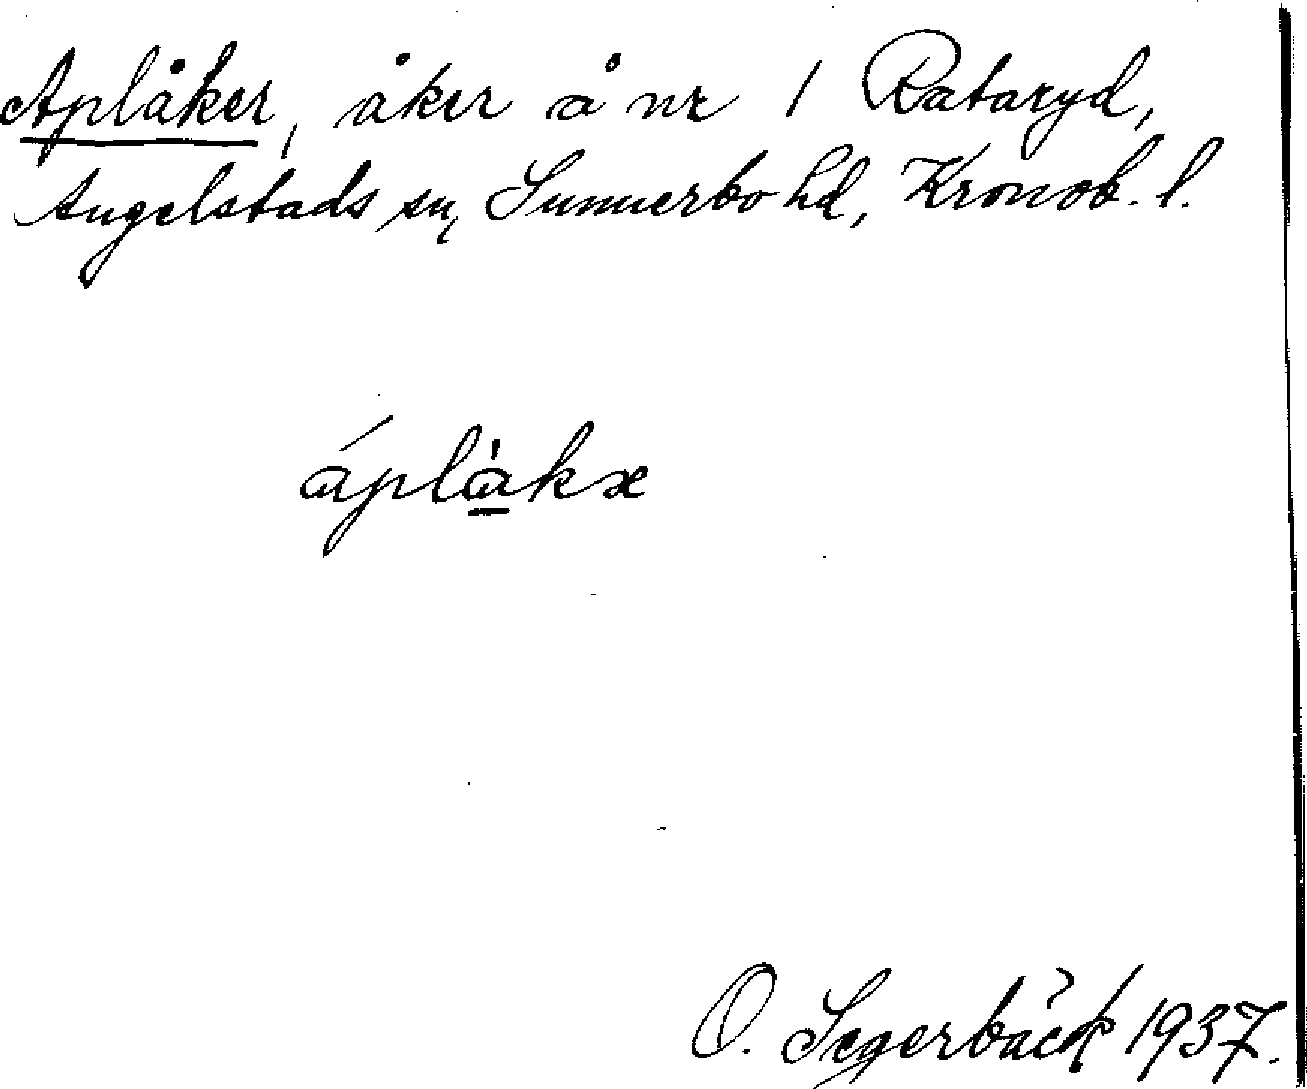 Aplåker, åker å nr 1 Rataryd,
Angelstads sn, Sunnerbo hd, Kronob. l.
áplàkæ
O. Segerbäck 1937.